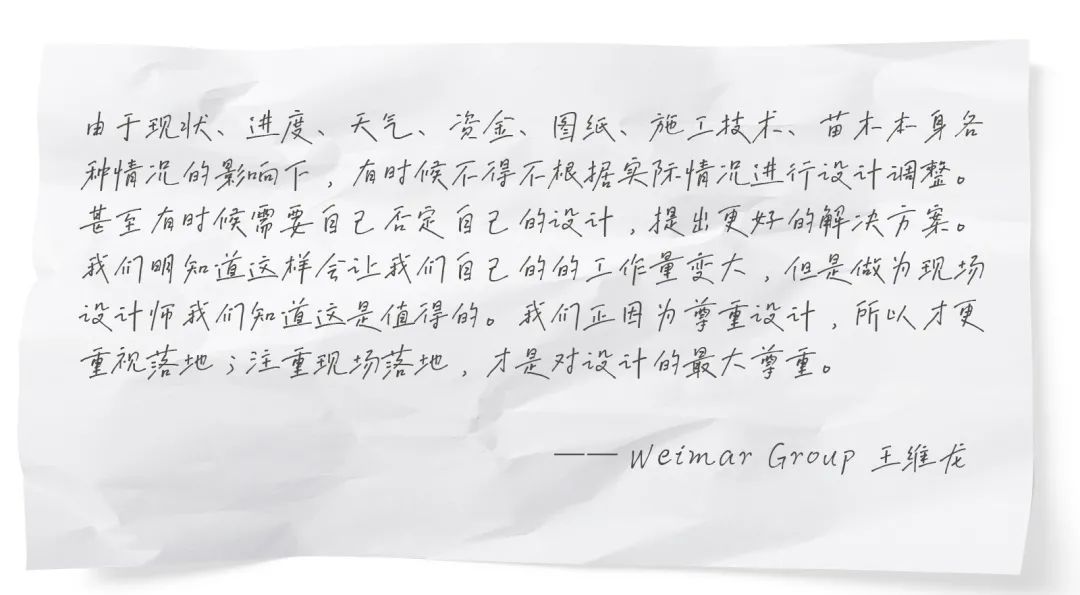 由于现状、进度、天气、资金、图纸、施工技术、苗木本身各
种情况的影响下，有时候不得不根据实际情况进行设计调整。
甚至有时候需要自己否定自己的设计，提出更好的解决方案。
我们明知道这样会让我们自己的的工作量变大，但是做为现场
设计师我们知道这是值得的。我们正因为尊重设计，所以才更
重视落地；注重现场落地，才是对设计的最大尊重。
—— Weimar Group 王维龙